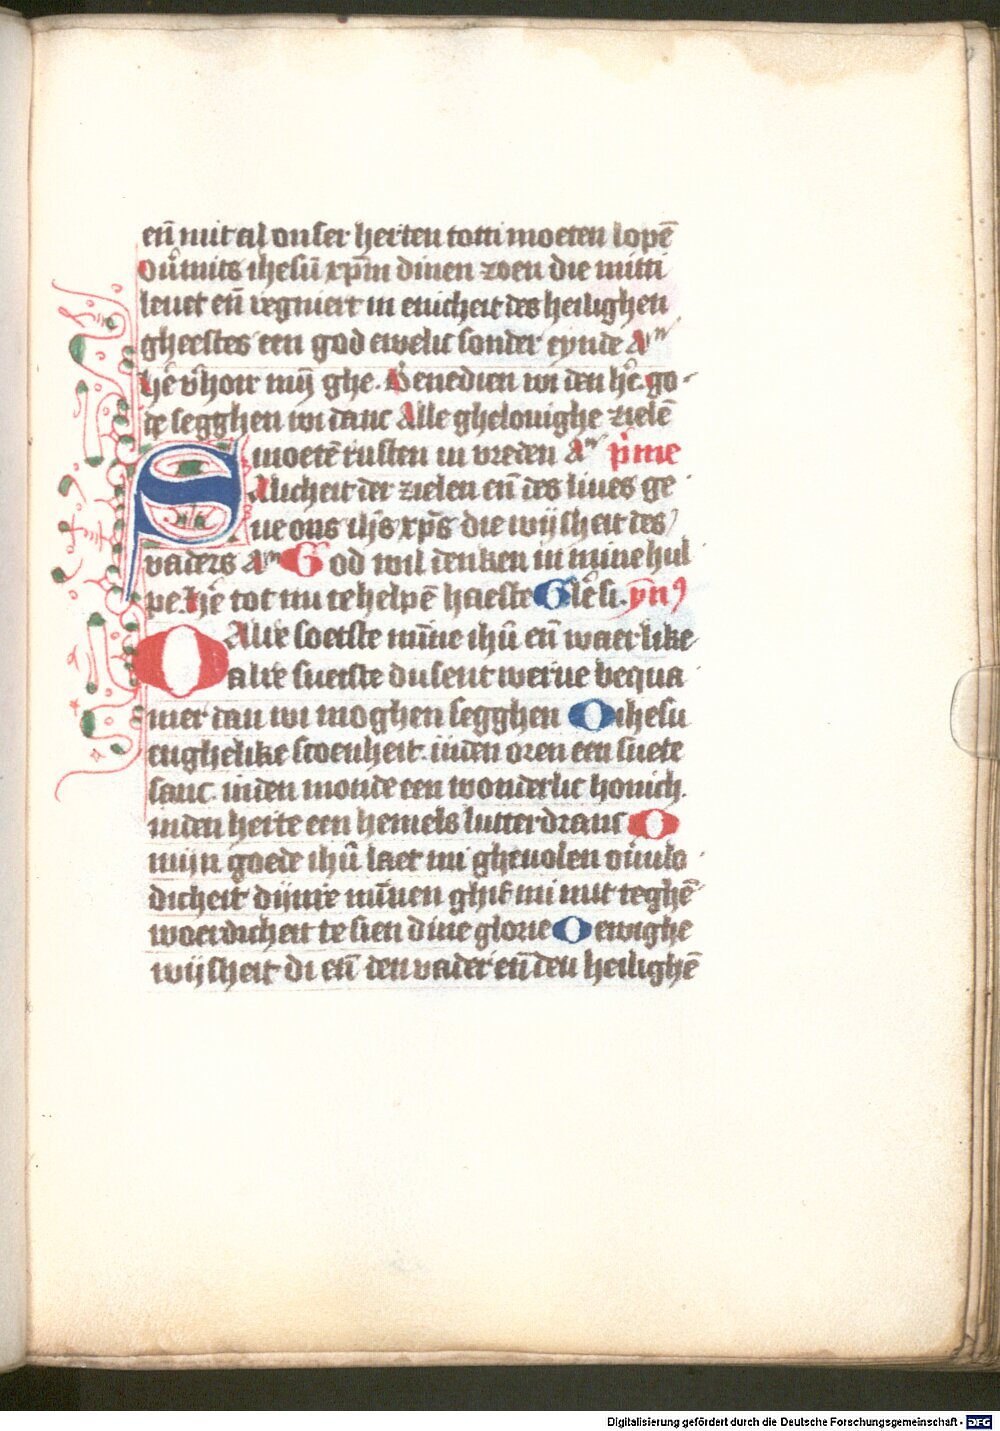 en̄ mit al onser herten totti moeten lopē
Ouͤmits ihesū xp̄m dinen zoen die mitti
leuet en̄ regniert in enicheit des heilighen
gheestes een god ewelic sonder eynde Amen
Hē v̄hoer mijn ghe. Benedien wi den hē. go-
de segghen wi danc Alle ghelouighe zielē
moetē rusten in vreden Am̄ p̄me
SAlicheit der zielen en̄ des liues ge
ue ons ih̄s xp̄s die wijsheit des
vaders Am̄ God wil denken in mine hul
pe. Hē tot mi te helpē haeste Glē si. yn̄ꝰ
O Alre soetste mīne ihū en̄ waerlike
alre suetste dusent werue bequa
mer dan wi moghen segghen O ihesu
enghelike scoenheit. inden oren een suete
sanc. inden monde een wonderlic honich.
inden herte een hemels lutterdranc O
mijn goede ihū laet mi gheuolen ouͤulo
dicheit dijnre mīnen ghif mi mit teghē
woerdicheit te sien dine glorie O ewighe
wijsheit di en̄ den vader en̄ den heilighē
Digitalisierung gefördert durch die Deutsche Forschungsgemeinschaft - DFG